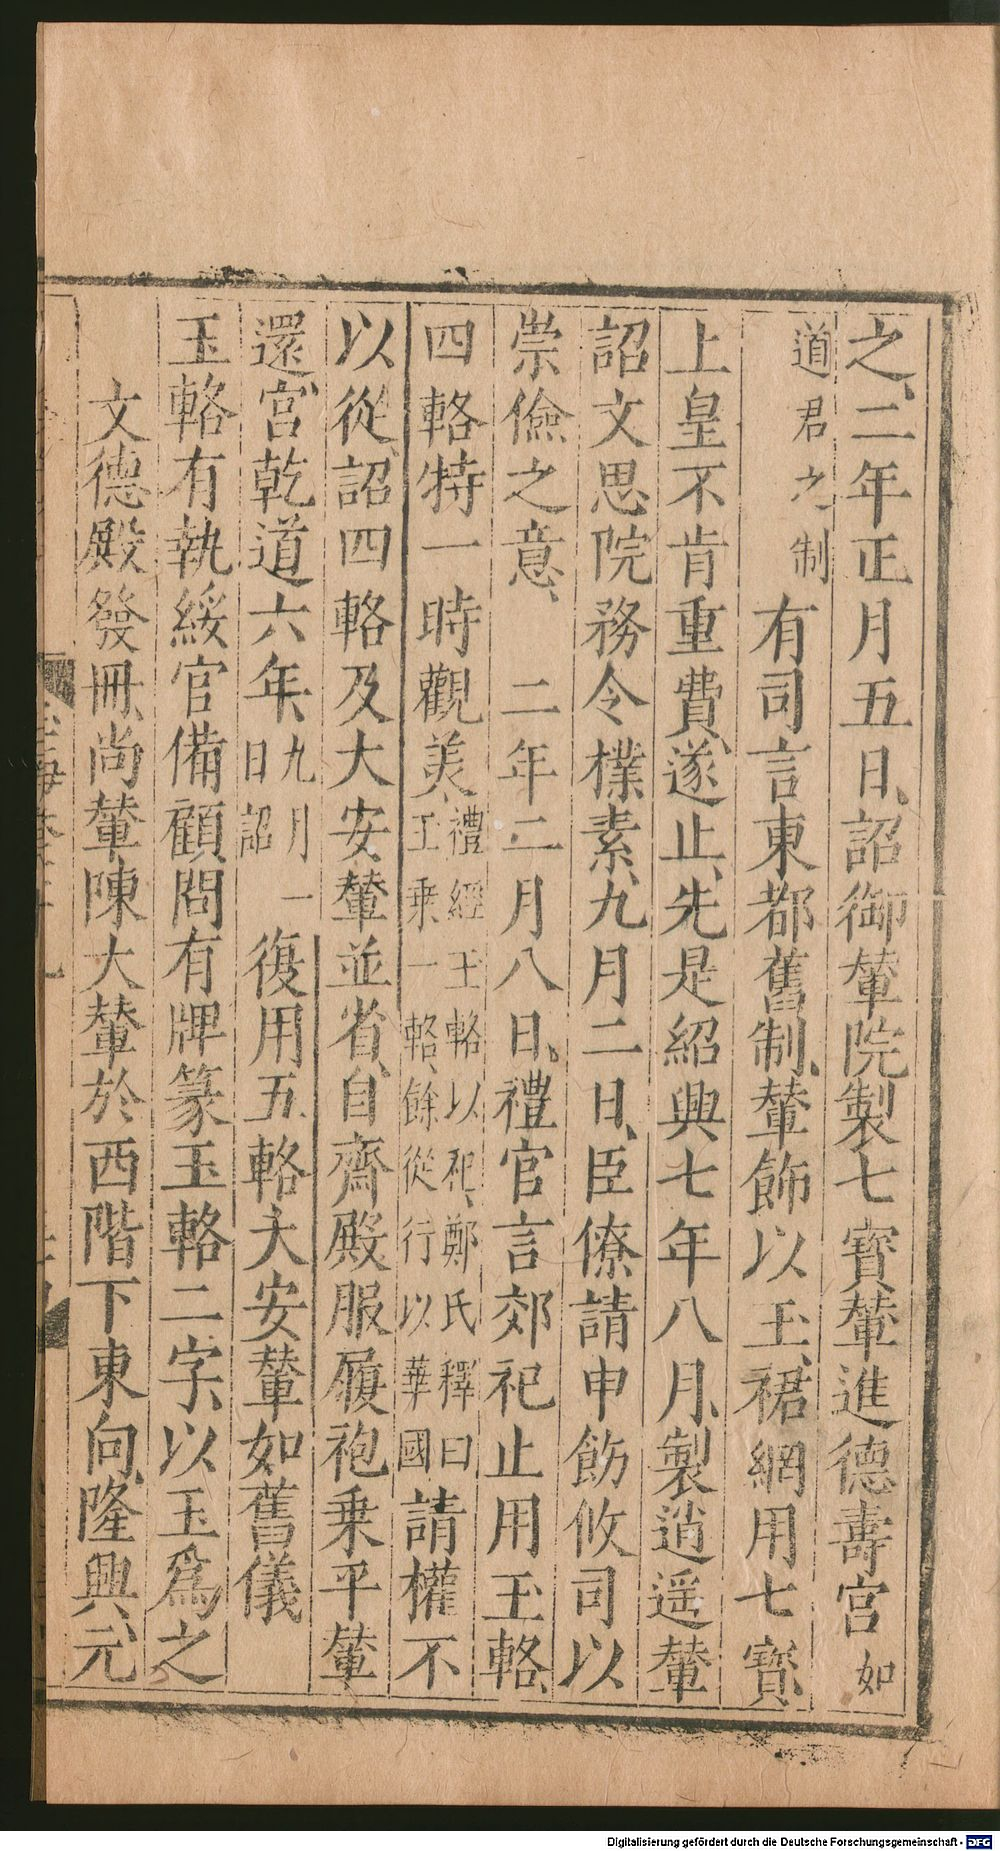 之、二年正月五日、詔御輦院製七寶輦進德壽宮如
道君之制有司言東都舊制、輦飾以玉、裙網用七寶、
上皇不肯重費、遂止、先是紹興七年八月、製逍遥輦
詔文思院務令樸素、九月二日、臣僚請申飭攸司以
崇儉之意、二年二月八日、禮官言郊祀止用玉輅、
四輅特一時觀美、禮經玉輅以祀、鄭氏釋曰王乗一輅、餘從行以華國請權不
以從、詔四輅及大安輦並省、自齋殿服履袍乗平輦
還宮、乾道六年、九月一日詔復用五輅大安輦如舊儀
玉輅有執綏官備顧問有牌篆玉輅二字、以玉爲之
文德殿發冊、尚輦陳大輦於西階下東向、隆興、元、
Digitalisierung gefördert durch die Deutsche Forschungsgemeinschaft - DFG